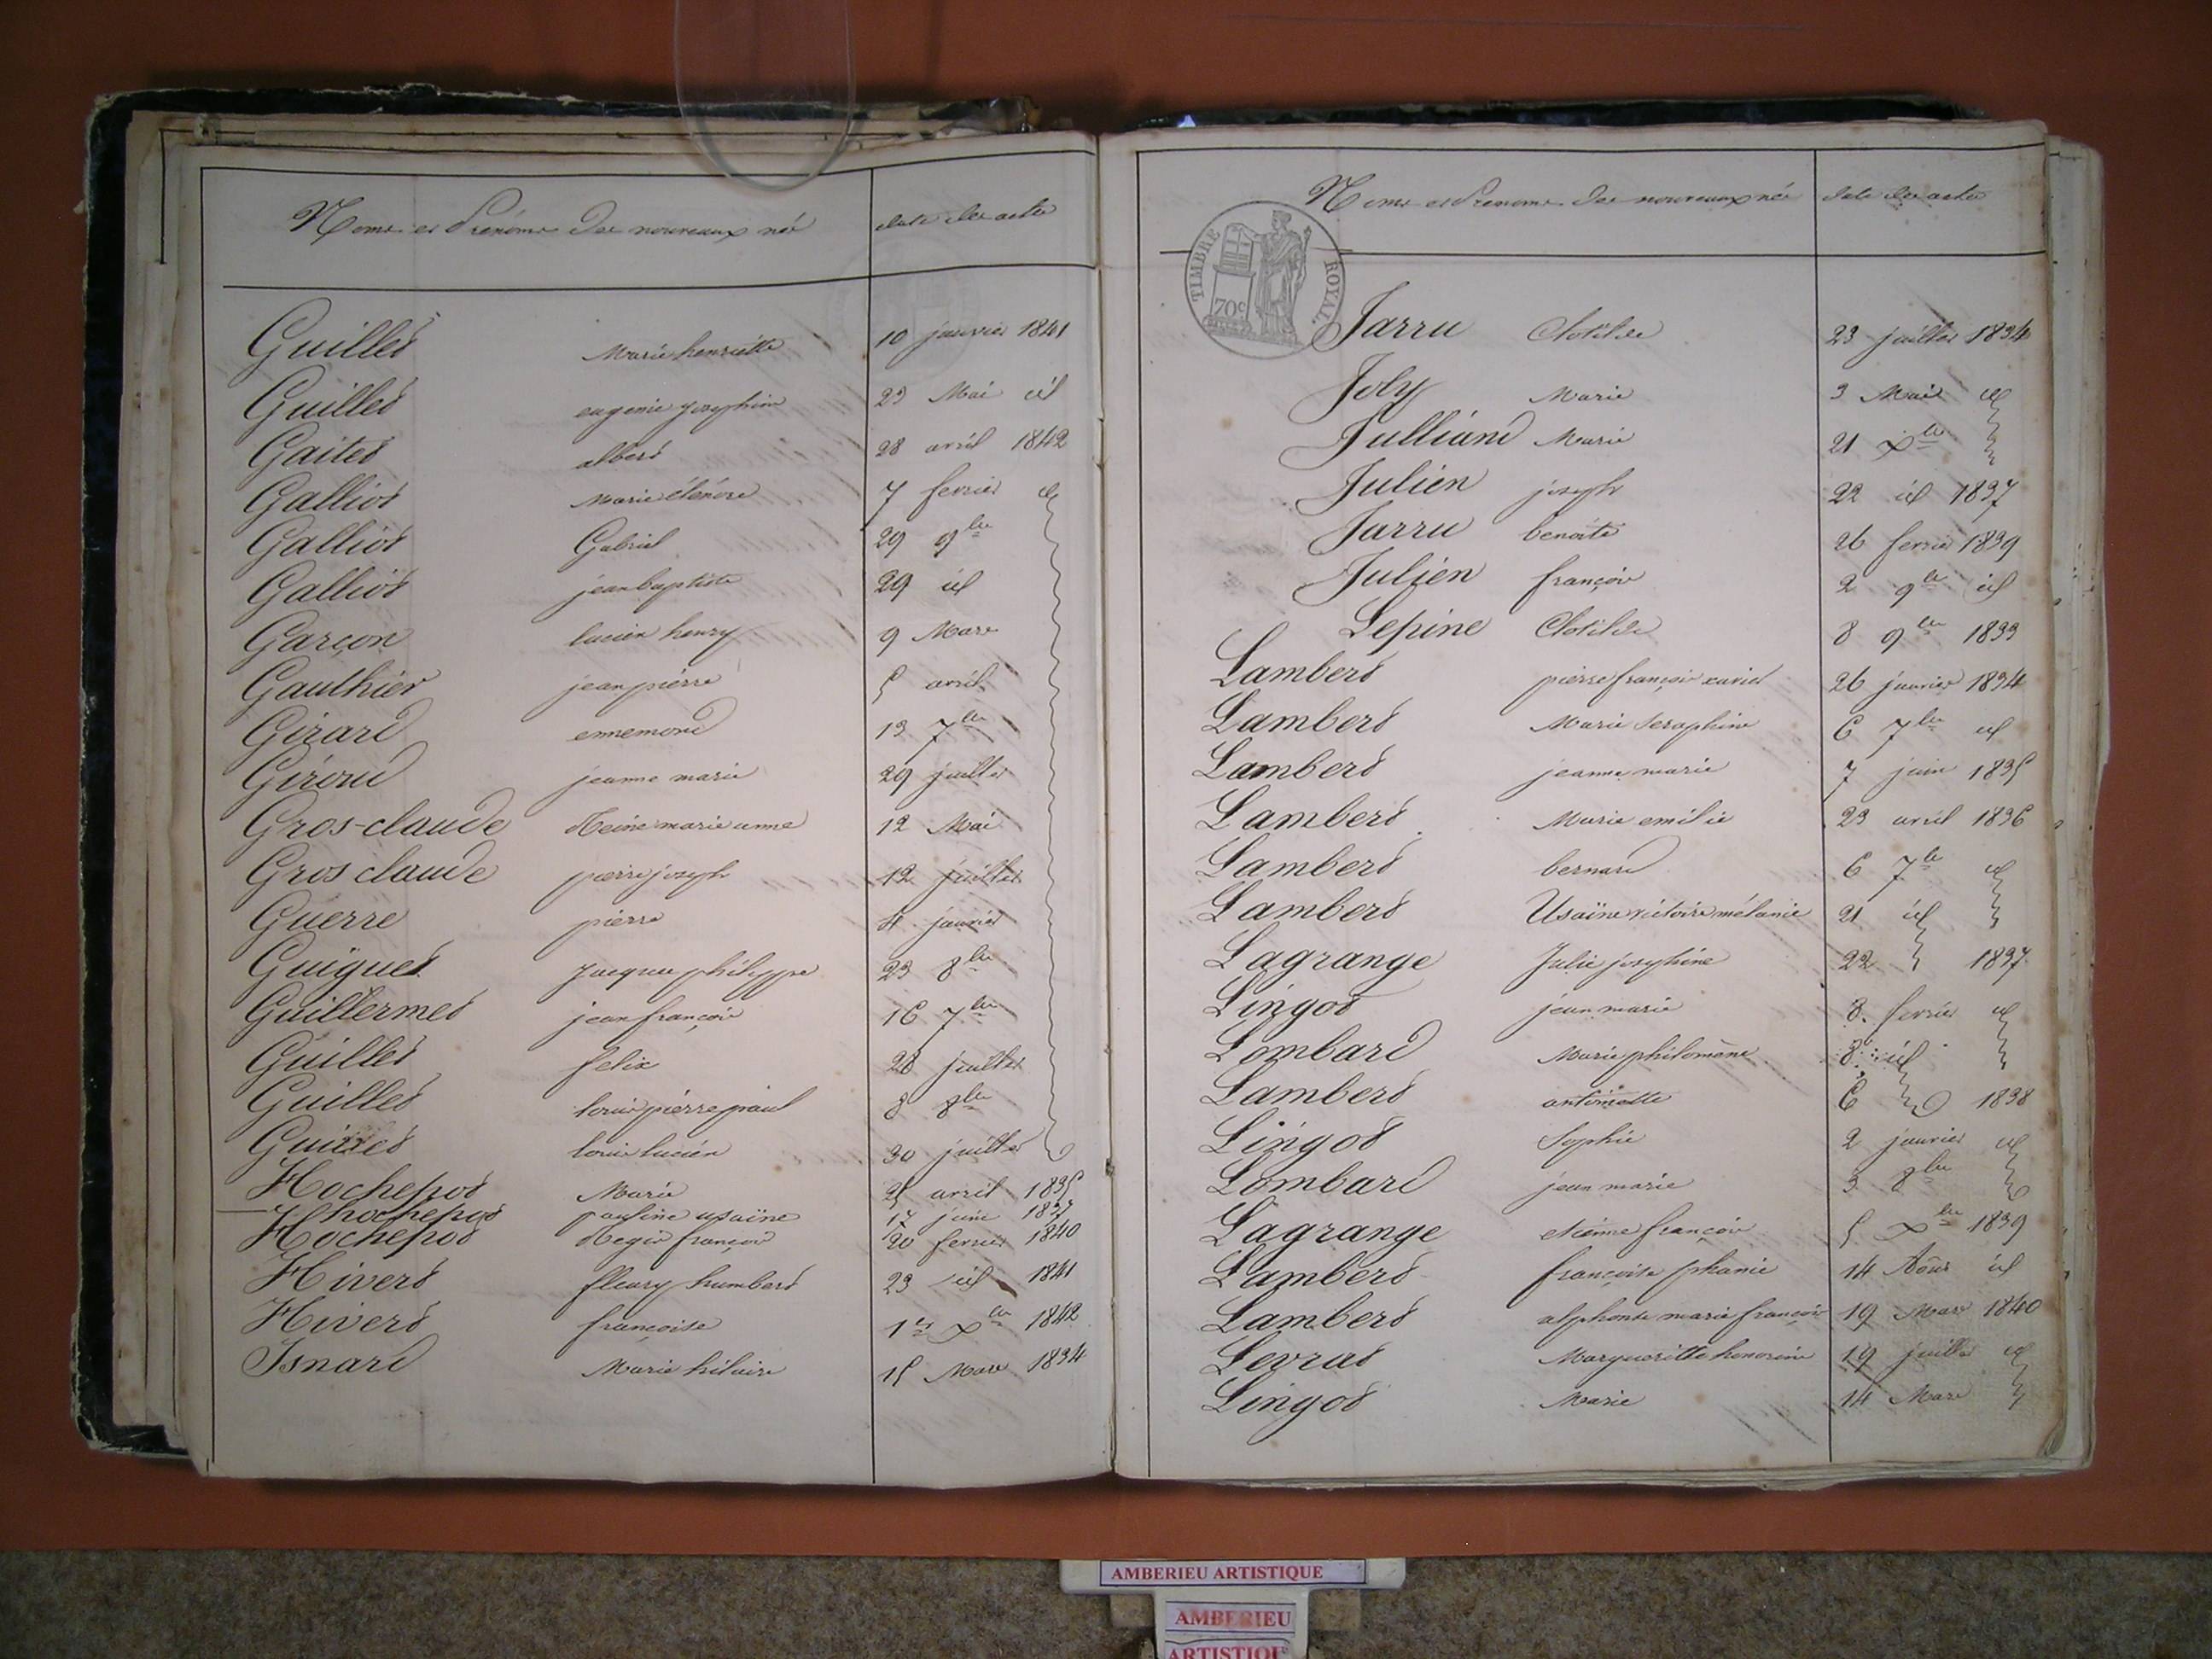 Noms et Prénoms des nouveaux né
date des actes
Guillet Marie henriette 10 janvier 1841
Guillet eugenie josephine 23 Mai id
Gaitet albert 28 avril 1842
Galliot Marie élénore 7 fevrier id
Galliot Gabriel 29 9bre
Galliot jean baptiste 29 id
Garçon lucien henry 9 Mars
Gauthier jean pierre 5 avril
Girard ennemond 13 7bre
Giroud jeanne marie 29 juillet
Gros-claude Reine marie anne 12 Mai
Gros claude pierre joseph 12 juillet
Guerre pierre 4 janvier
Guiguet jacques philippe 23 8bre
Guillermet jean françois 16 7bre
Guillet felix 28 juillet
Guillet louis pierre paul 8 8bre
Guillet louis lucien 30 juillet
Hochepot Marie 25 avril 1835
hochepot pauline usaine 17 juin 1837
Hochepot Regis françois 20 fevrier 1840
Hivert fleury humbert 23 id 1841
Hivert françoise 1er Xbre 1842
Isnard Marie hilaire 15 Mars 1834
Noms et Prenoms des nouveaux nés
date des actes
TIMBRE ROYAL
70c
Jarru Clotilde 23 juillet 1834
Joly Marie 3 Mai id
Julliand Marie 21 Xbre
Julien joseph 22 id 1837
Jarru benoite 26 fevrier 1839
Julien françois 2 9bre id
Lepine Clotilde 8 9bre 1833
Lambert pierre françois xavier 26 janvier 1834
Lambert Marie Seraphine 6 7bre id
Lambert jeanne marie 7 juin 1835
Lambert Marie emélie 23 avril 1836
Lambert bernard 6 7bre id
Lambert Usaïne victoire mélanie 21 id
Lagrange Julie josephine 22 1837
Lingot jean marie 8 fevrier id
Lombard Marie philomène 8 id
Lambert antoinette 6 1838
Lingot Sophie 2 janvier id
Lombard jean marie 3 8bre
Lagrange etienne françois 5 Xbre 1839
Lambert françoise phanie 14 Août id
Lambert alphonse marie françois 19 Mars 1840
Levrat Margueritte honorine 19 juillet id
Lingot Marie 14 Mars
AMBERIEU ARTISTIQUE
AMBERIEU
ARTISTIQU